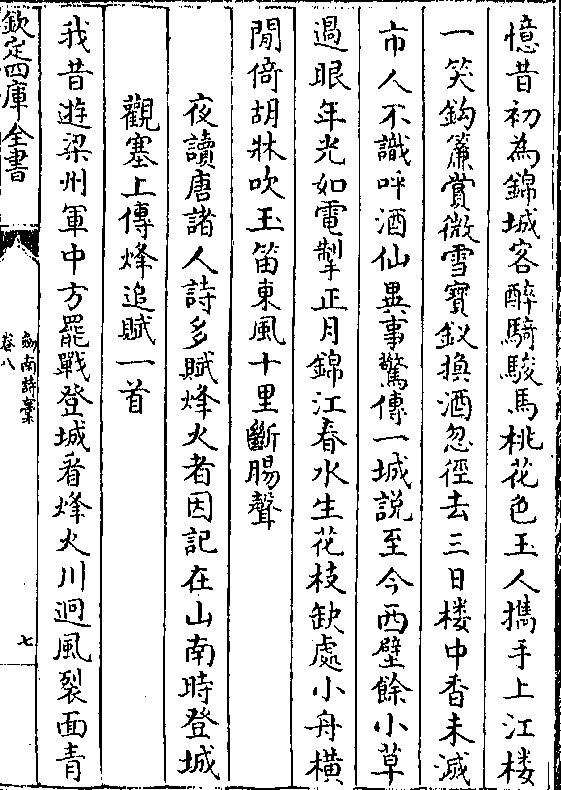 憶昔初為錦城客醉騎駿馬桃花色玉人攜手上江樓
一笑鈎簾賞微雪寳釵換酒忽徑去三日樓中香未滅
市人不識呼酒仙異事驚傳一城說至今西壁餘小草
過眼年光如電掣正月錦江春水生花枝缺處小舟橫
閒倚胡牀吹玉笛東風十里斷腸聲
夜讀唐諸人詩多賦烽火者因記在山南時登城
觀塞上傳烽追賦一首
我昔遊梁州軍中方罷戰登城看烽火川迥風裂面青
欽定四庫全書
劔南詩稾
卷八
七